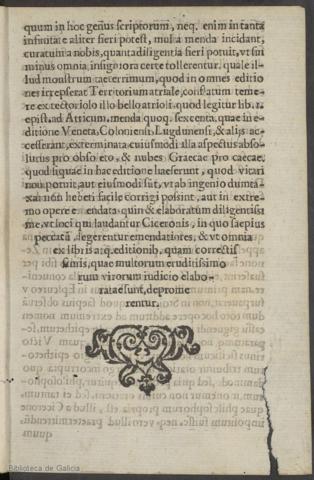 quum in hoc genus scriptorum, neq. enim in tanta
infinitate aliter fieri potest, multa menda incidant,
curatum a nobis, quanta diligentia fieri potuit, vt sui
minus omnia, insigniora certe tollerentur. quale il-
lud monstrum taeterrimum, quod in omnes editio
nes irrepserat Territorium atriale, conflatum teme-
re ex tectoriolo illo bello atrioli. quod legitur lib. 1.
epist. ad Atticum. menda quoq. sexcenta, quae in e-
ditione Veneta, Coloniensi, Lugdunensi, & alijs ac-
cesserant, exterminata cuiusmodi illa aspectus abso-
lutus pro obsoleto, & nubes Graecae pro caecae.
quod si quae in hac editione haeserunt, quod vitari
non potuit, aut eiusmodi sūt, vt ab ingenio dumta-
xat non hebeti facile corrigi possint, aut in extre-
mo opere emendata. quin & elaboratum diligentissi
me, vt loci qui laudantur Ciceronis, in quo saepius
peccatū, legerentur emendatiores, & vt omnia
ex libris a.q. editionib. quam correctis
simis, quae multorum eruditissimo
rum virorum iudicio elabo-
ratae sunt, deprome
rentur.
Biblioteca de Galicia